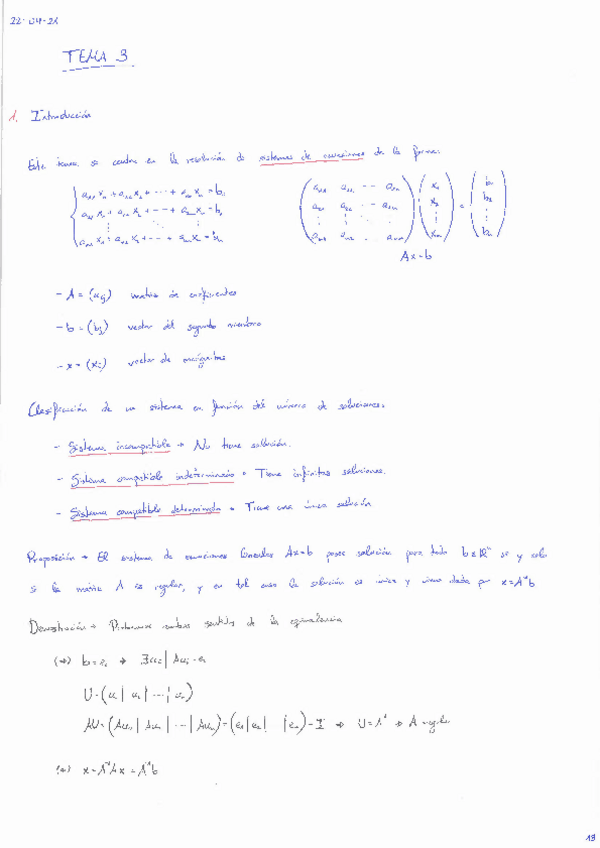 22-04-21
TEMA 3
1. Introducción
Este tema se centra en la resolución de sistemas de ecuaciones de la forma:
a₁₁x₁ + a₁₂x₂ + ··· + a₁ₙxₙ = b₁
a₂₁x₁ + a₂₂x₂ + ··· + a₂ₙxₙ = b₂
aₙ₁x₁ + aₙ₂x₂ + ··· + aₙₙxₙ = bₙ
(a₁₁ a₁₂ ··· a₁ₙ; a₂₁ a₂₂ ··· a₂ₙ; ⋮ ⋮ ⋮; aₙ₁ aₙ₂ ··· aₙₙ) (x₁; x₂; ⋮; xₙ) = (b₁; b₂; ⋮; bₙ)
Ax=b
- A = (aᵢⱼ) matriz de coeficientes
- b = (bⱼ) vector del segundo miembro
- x = (xᵢ) vector de incógnitas
Clasificación de un sistema en función del número de soluciones:
- Sistema incompatible → No tiene solución.
- Sistema compatible indeterminado → Tiene infinitas soluciones.
- Sistema compatible determinado → Tiene una única solución
Proposición → El sistema de ecuaciones lineales Ax=b posee solución para todo b∈ℝⁿ si y solo
si la matriz A es regular, y en tal caso la solución es única y viene dada por x=A⁻¹b
Demostración → ambos sentidos de la equivalencia
(⇒) b=eᵢ → ∃uᵢ | Auᵢ = eᵢ
U = (u₁ | u₂ | ··· | uₙ)
AU = (Au₁ | Au₂ | ··· | Auₙ) = (e₁ | e₂ | | eₙ) = I ⇒ U = A⁻¹ ⇒ A regular
(⇐) x = A⁻¹Ax = A⁻¹b
19